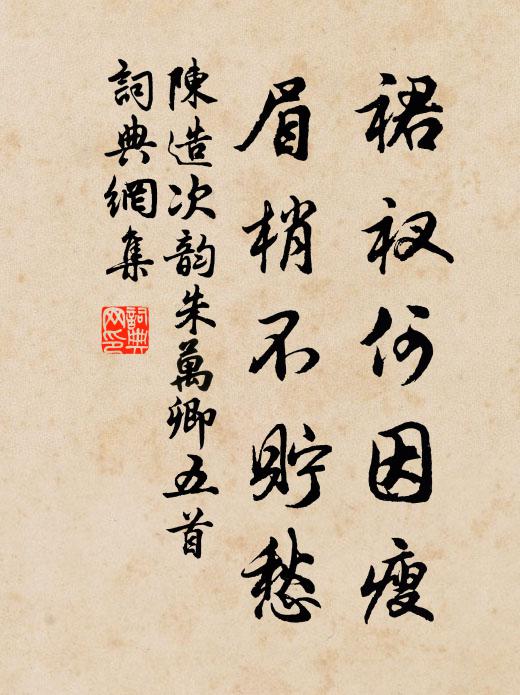 裙衩何因瘦
眉梢不貯愁
陳造次韵朱萬卿五首
詞典網集
詞典网印